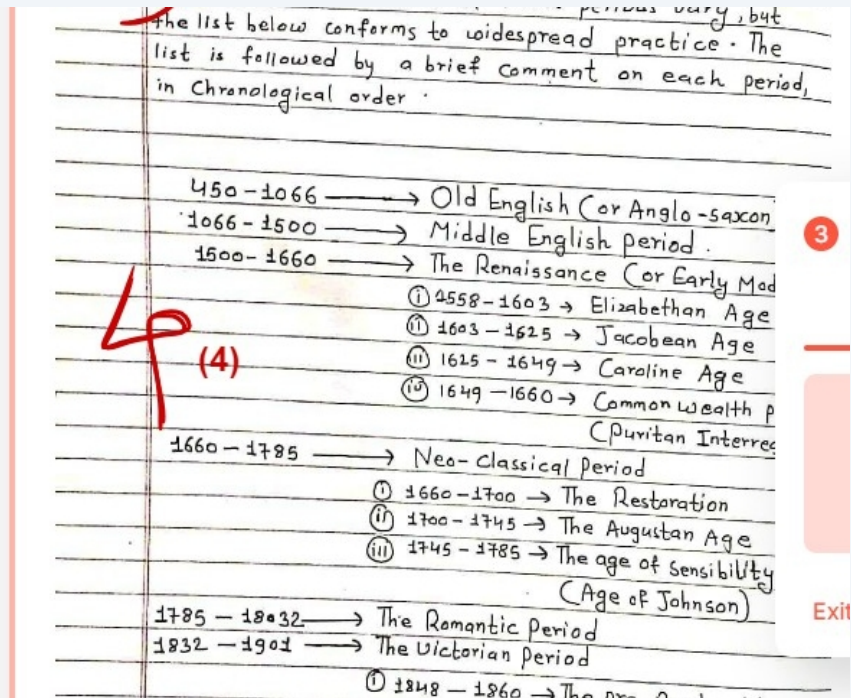 periods vary, but
the list below conforms to widespread practice. The
list is followed by a brief comment on each period,
in Chronological order.
450-1066 → Old English (or Anglo-saxon
1066-1500 → Middle English period.
1500-1660 → The Renaissance (or Early Mod
(i) 1558-1603 → Elizabethan Age
(ii) 1603-1625 → Jacobean Age
(iii) 1625-1649 → Caroline Age
(iv) 1649-1660 → Common wealth p
(Puritan Interreg
4
(4)
1660-1785 → Neo-Classical Period
(i) 1660-1700 → The Restoration
(ii) 1700-1745 → The Augustan Age
(iii) 1745-1785 → The age of sensibility
(Age of Johnson)
1785-1832 → The Romantic Period
1832-1901 → The Victorian Period
(i) 1848-1860 → The
3
Exit